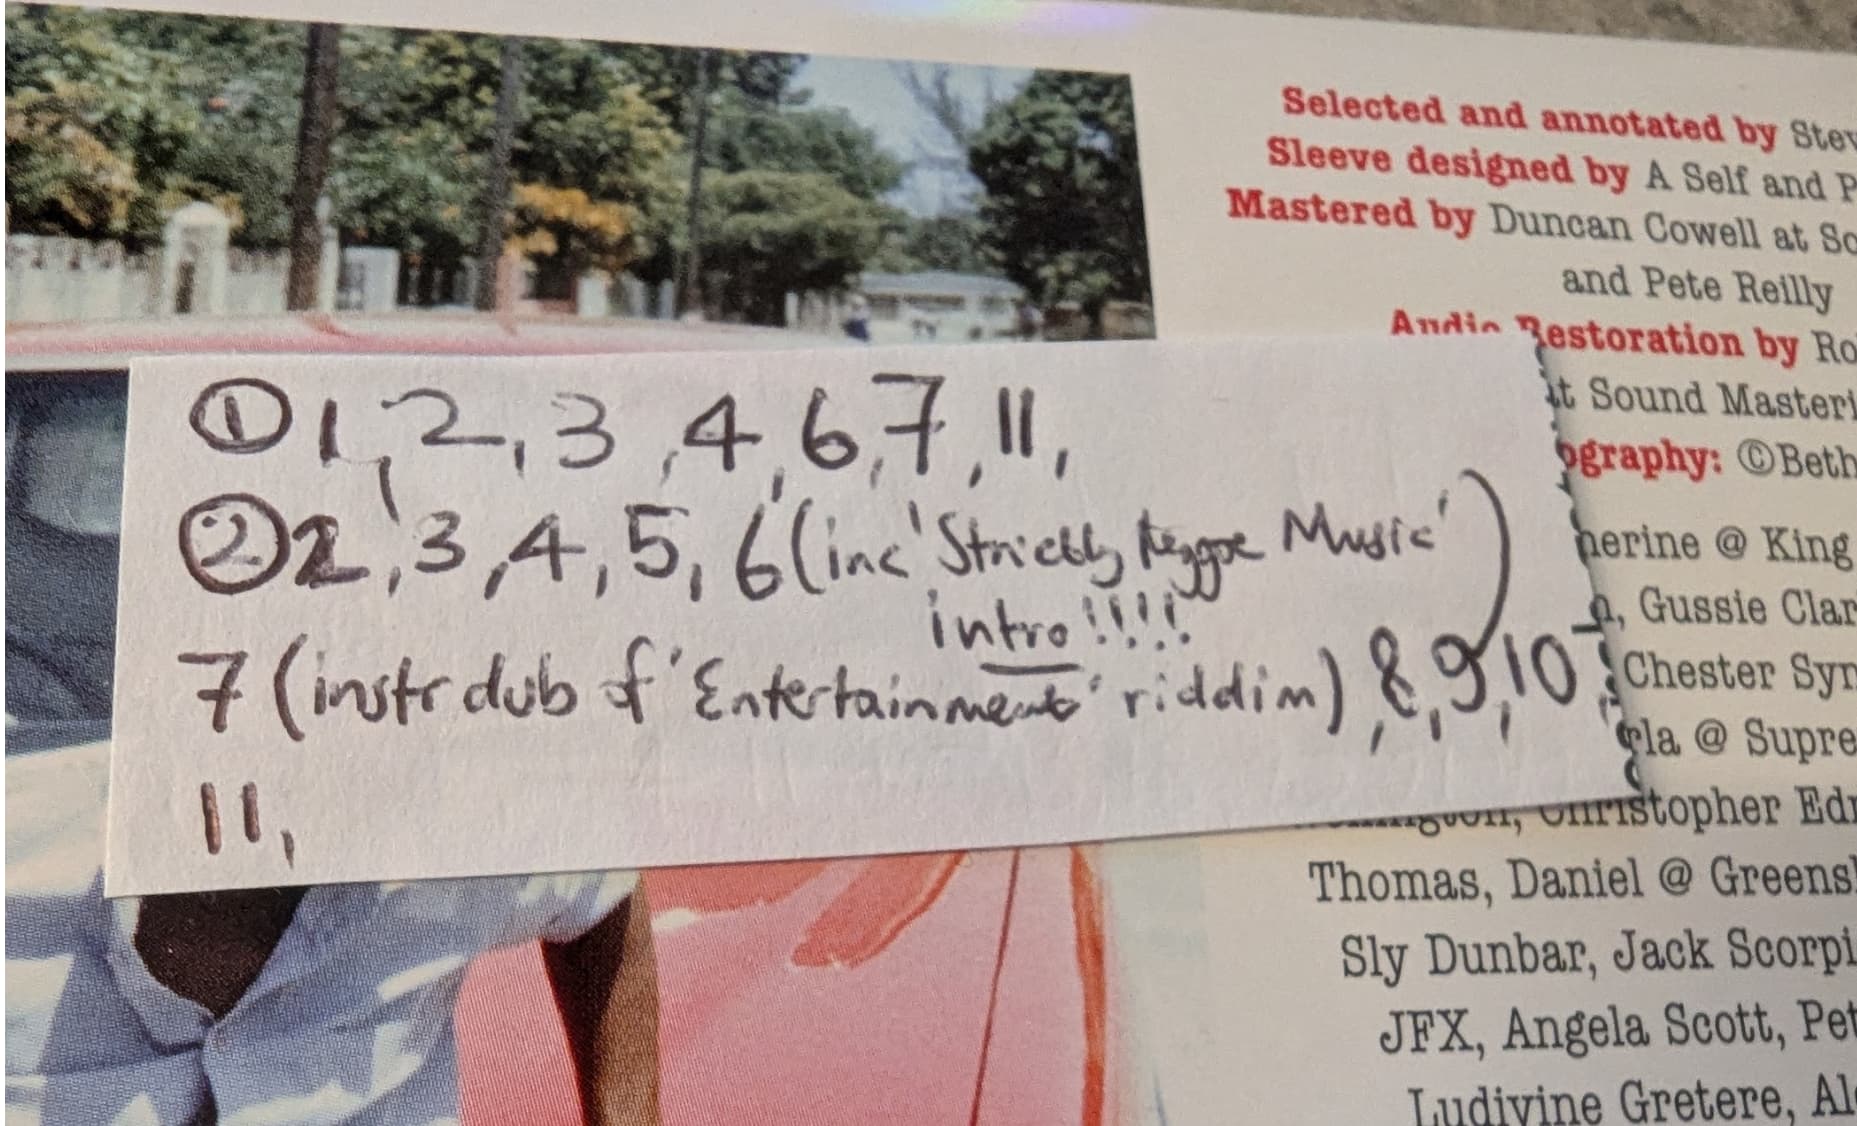 Selected and annotated by Stev
Sleeve designed by A Self and P
Mastered by Duncan Cowell at So
and Pete Reilly
Audio Restoration by Ro
at Sound Masteri
ography: ©Beth
herine @ King
n, Gussie Clar
Chester Syn
rla @ Supre
Christopher Edn
Thomas, Daniel @ Greensl
Sly Dunbar, Jack Scorpi
JFX, Angela Scott, Pet
Ludivine Gretere, Al
① 1, 2, 3, 4, 6, 7, 11,
② 2, 3, 4, 5, 6 (inc 'Strictly Reggae Music'
intro!!!!)
7 (instr dub of 'Entertainment' riddim), 8, 9, 10
11,